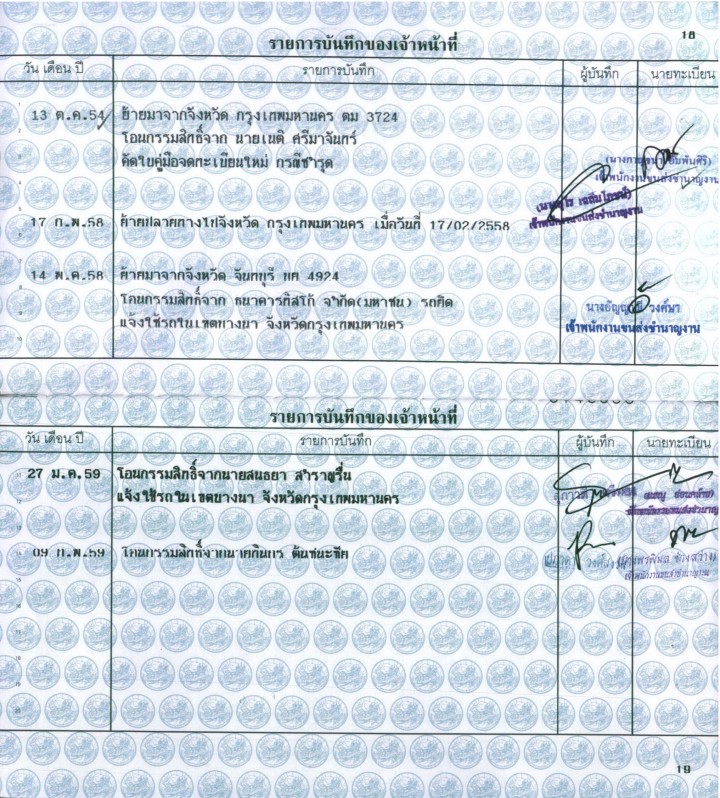 18
รายการบันทึกของเจ้าหน้าที่
วัน เดือน ปี รายการบันทึก ผู้บันทึก นายทะเบียน
13 ต.ค.54 ย้ายมาจากจังหวัด กรุงเทพมหานคร ตม 3724
โอนกรรมสิทธิ์จาก นายเนติ ศรีมาจันทร์
คัดใบคู่มือจดทะเบียนใหม่ กรณีชำรุด
เจ้าพนักงานขนส่งชำนาญงาน
17 ก.พ.58 ย้ายปลายทางไปจังหวัด กรุงเทพมหานคร เมื่อวันที่ 17/02/2558
14 พ.ค.58 ย้ายมาจากจังหวัด จันทบุรี 4924
โอนกรรมสิทธิ์จาก ธนาคารทิสโก้ จำกัด(มหาชน)
แจ้งใช้รถในเขตบางนา จังหวัดกรุงเทพมหานคร
วงค์ษา
เจ้าพนักงานขนส่งชำนาญงาน
รายการบันทึกของเจ้าหน้าที่
วัน เดือน ปี รายการบันทึก ผู้บันทึก นายทะเบียน
27 ม.ค.59 โอนกรรมสิทธิ์จากนายสนธยา สำราญรื่น
แจ้งใช้รถในเขตบางนา จังหวัดกรุงเทพมหานคร
09 ก.พ.59 โอนกรรมสิทธิ์จากนายกันกร ตันชนะชัย
เจ้าพนักงานขนส่งชำนาญงาน
19